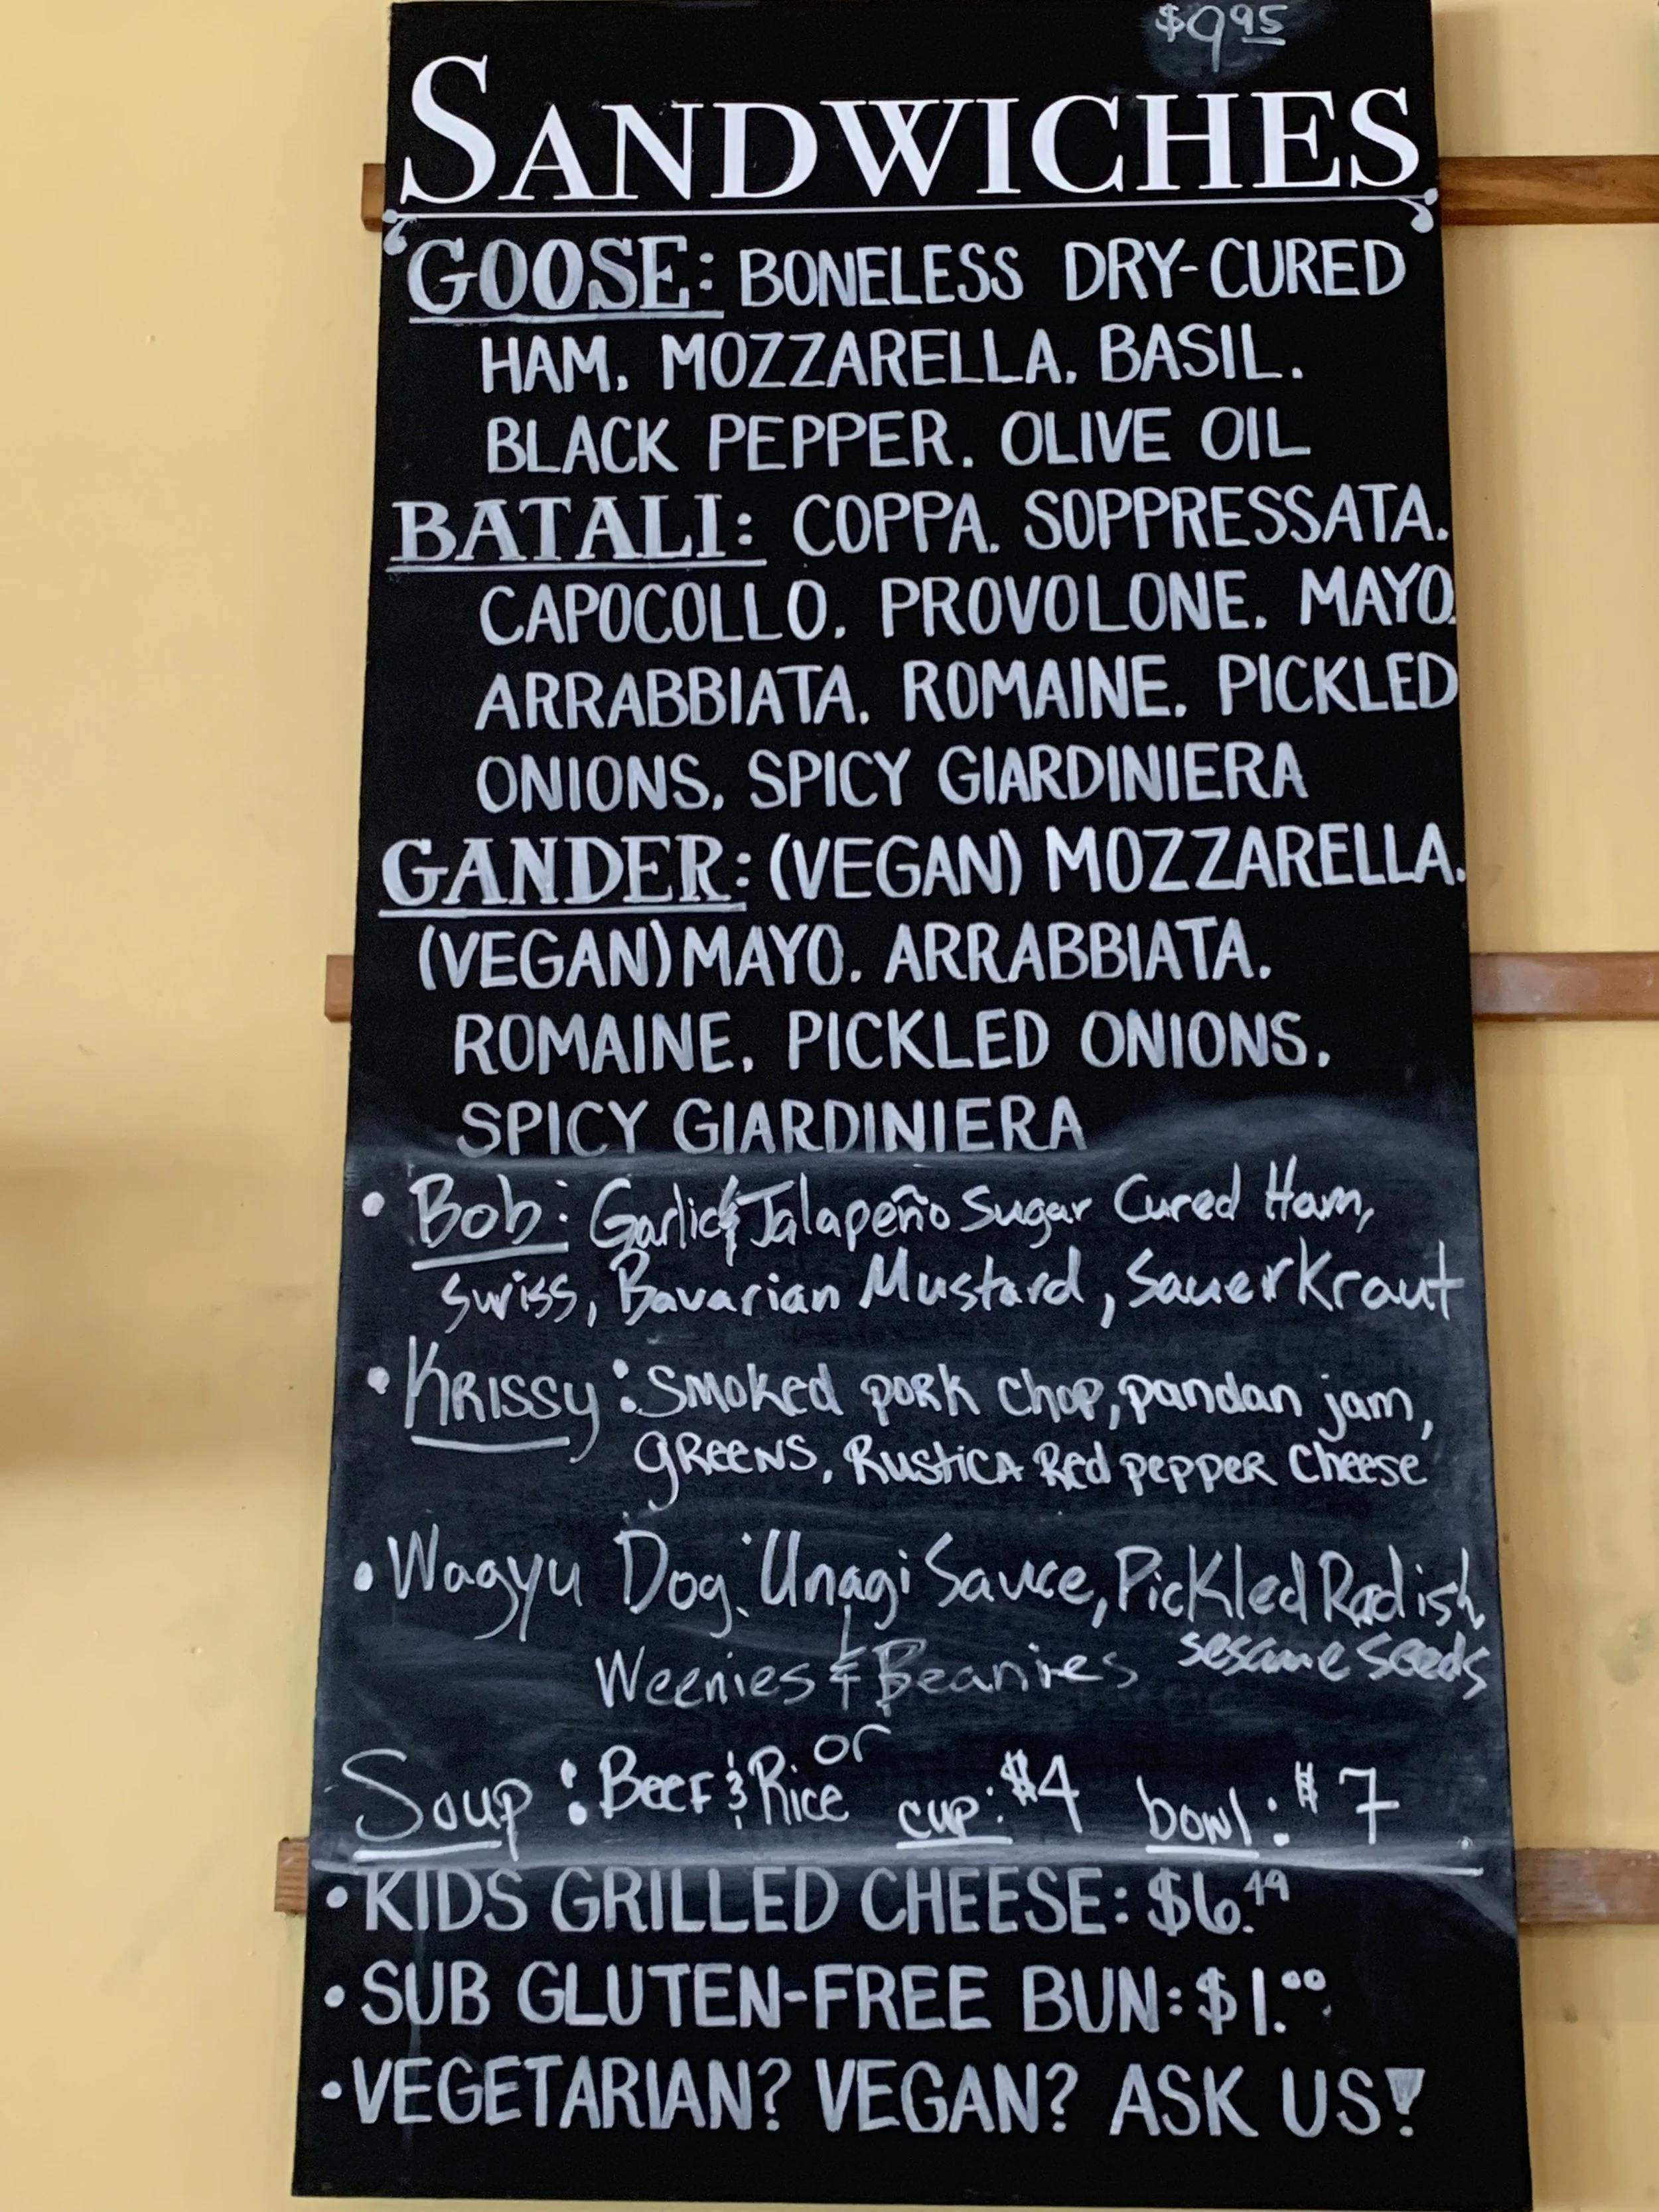 $9.95
SANDWICHES
GOOSE: BONELESS DRY-CURED
HAM. MOZZARELLA. BASIL.
BLACK PEPPER. OLIVE OIL
BATALI: COPPA. SOPPRESSATA.
CAPOCOLLO. PROVOLONE. MAYO.
ARRABBIATA. ROMAINE. PICKLED
ONIONS. SPICY GIARDINIERA
GANDER: (VEGAN) MOZZARELLA.
(VEGAN) MAYO. ARRABBIATA.
ROMAINE. PICKLED ONIONS.
SPICY GIARDINIERA
• Bob: Garlic & Jalapeño Sugar Cured Ham,
Swiss, Bavarian Mustard, SauerKraut
• KRISSY: Smoked pork chop, pandan jam,
greens, Rustica Red pepper cheese
• Wagyu Dog: Unagi Sauce, Pickled Radish,
sesame seeds
Weenies & Beanies
or
Soup: Beef & Rice cup: $4 bowl: $7
• KIDS GRILLED CHEESE: $6.49
• SUB GLUTEN-FREE BUN: $1.00
• VEGETARIAN? VEGAN? ASK US!